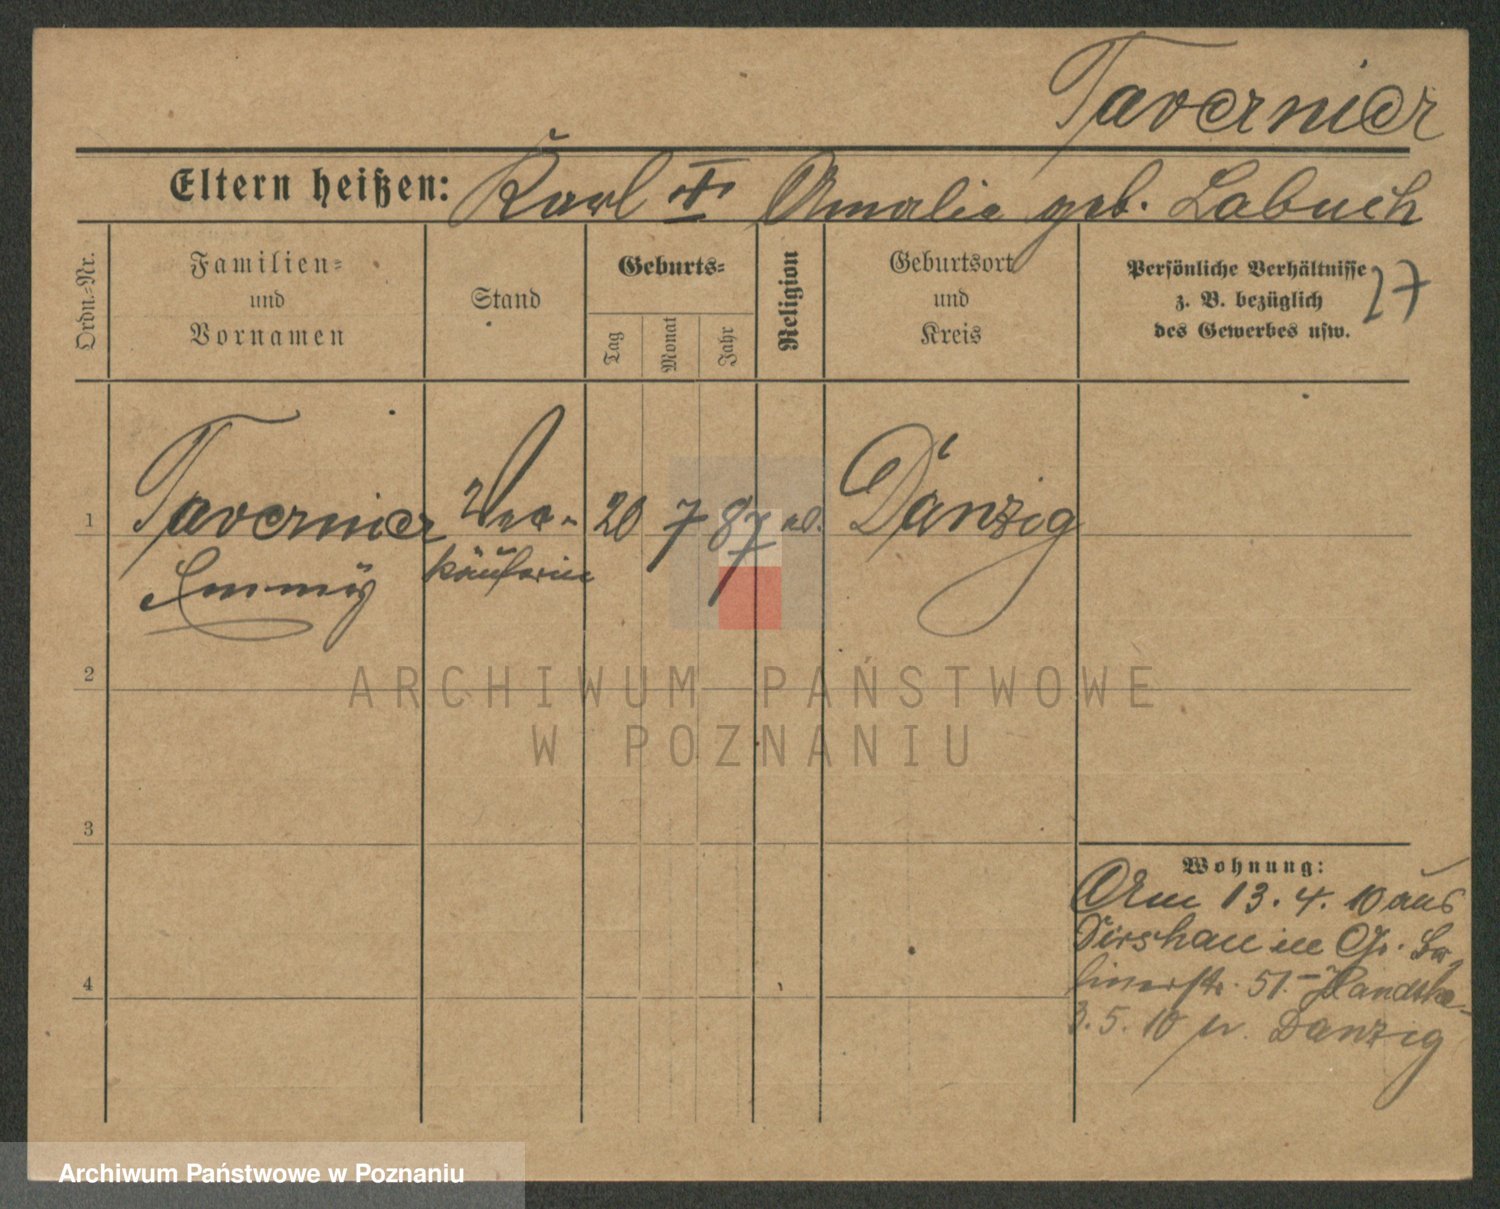 Tavernier
Eltern heißen: Karl † Amalie geb. Labuch
Ordn.-Nr.
Familien-
und
Vornamen
Stand
Geburts-
Tag
Monat
Jahr
Religion
Geburtsort
und
Kreis
Persönliche Verhältnisse
z. B. bezüglich
des Gewerbes usw.
27
1
Tavernier Ver- 20 7 87 Danzig
Emmÿ käuferin
2
ARCHIWUM PAŃSTWOWE
W POZNANIU
3
Wohnung:
Am 13. 4. 10 aus
Dirshau in Gr. Ber-
linerstr. 51.
4
3. 5. 10 n. Danzig
Archiwum Państwowe w Poznaniu